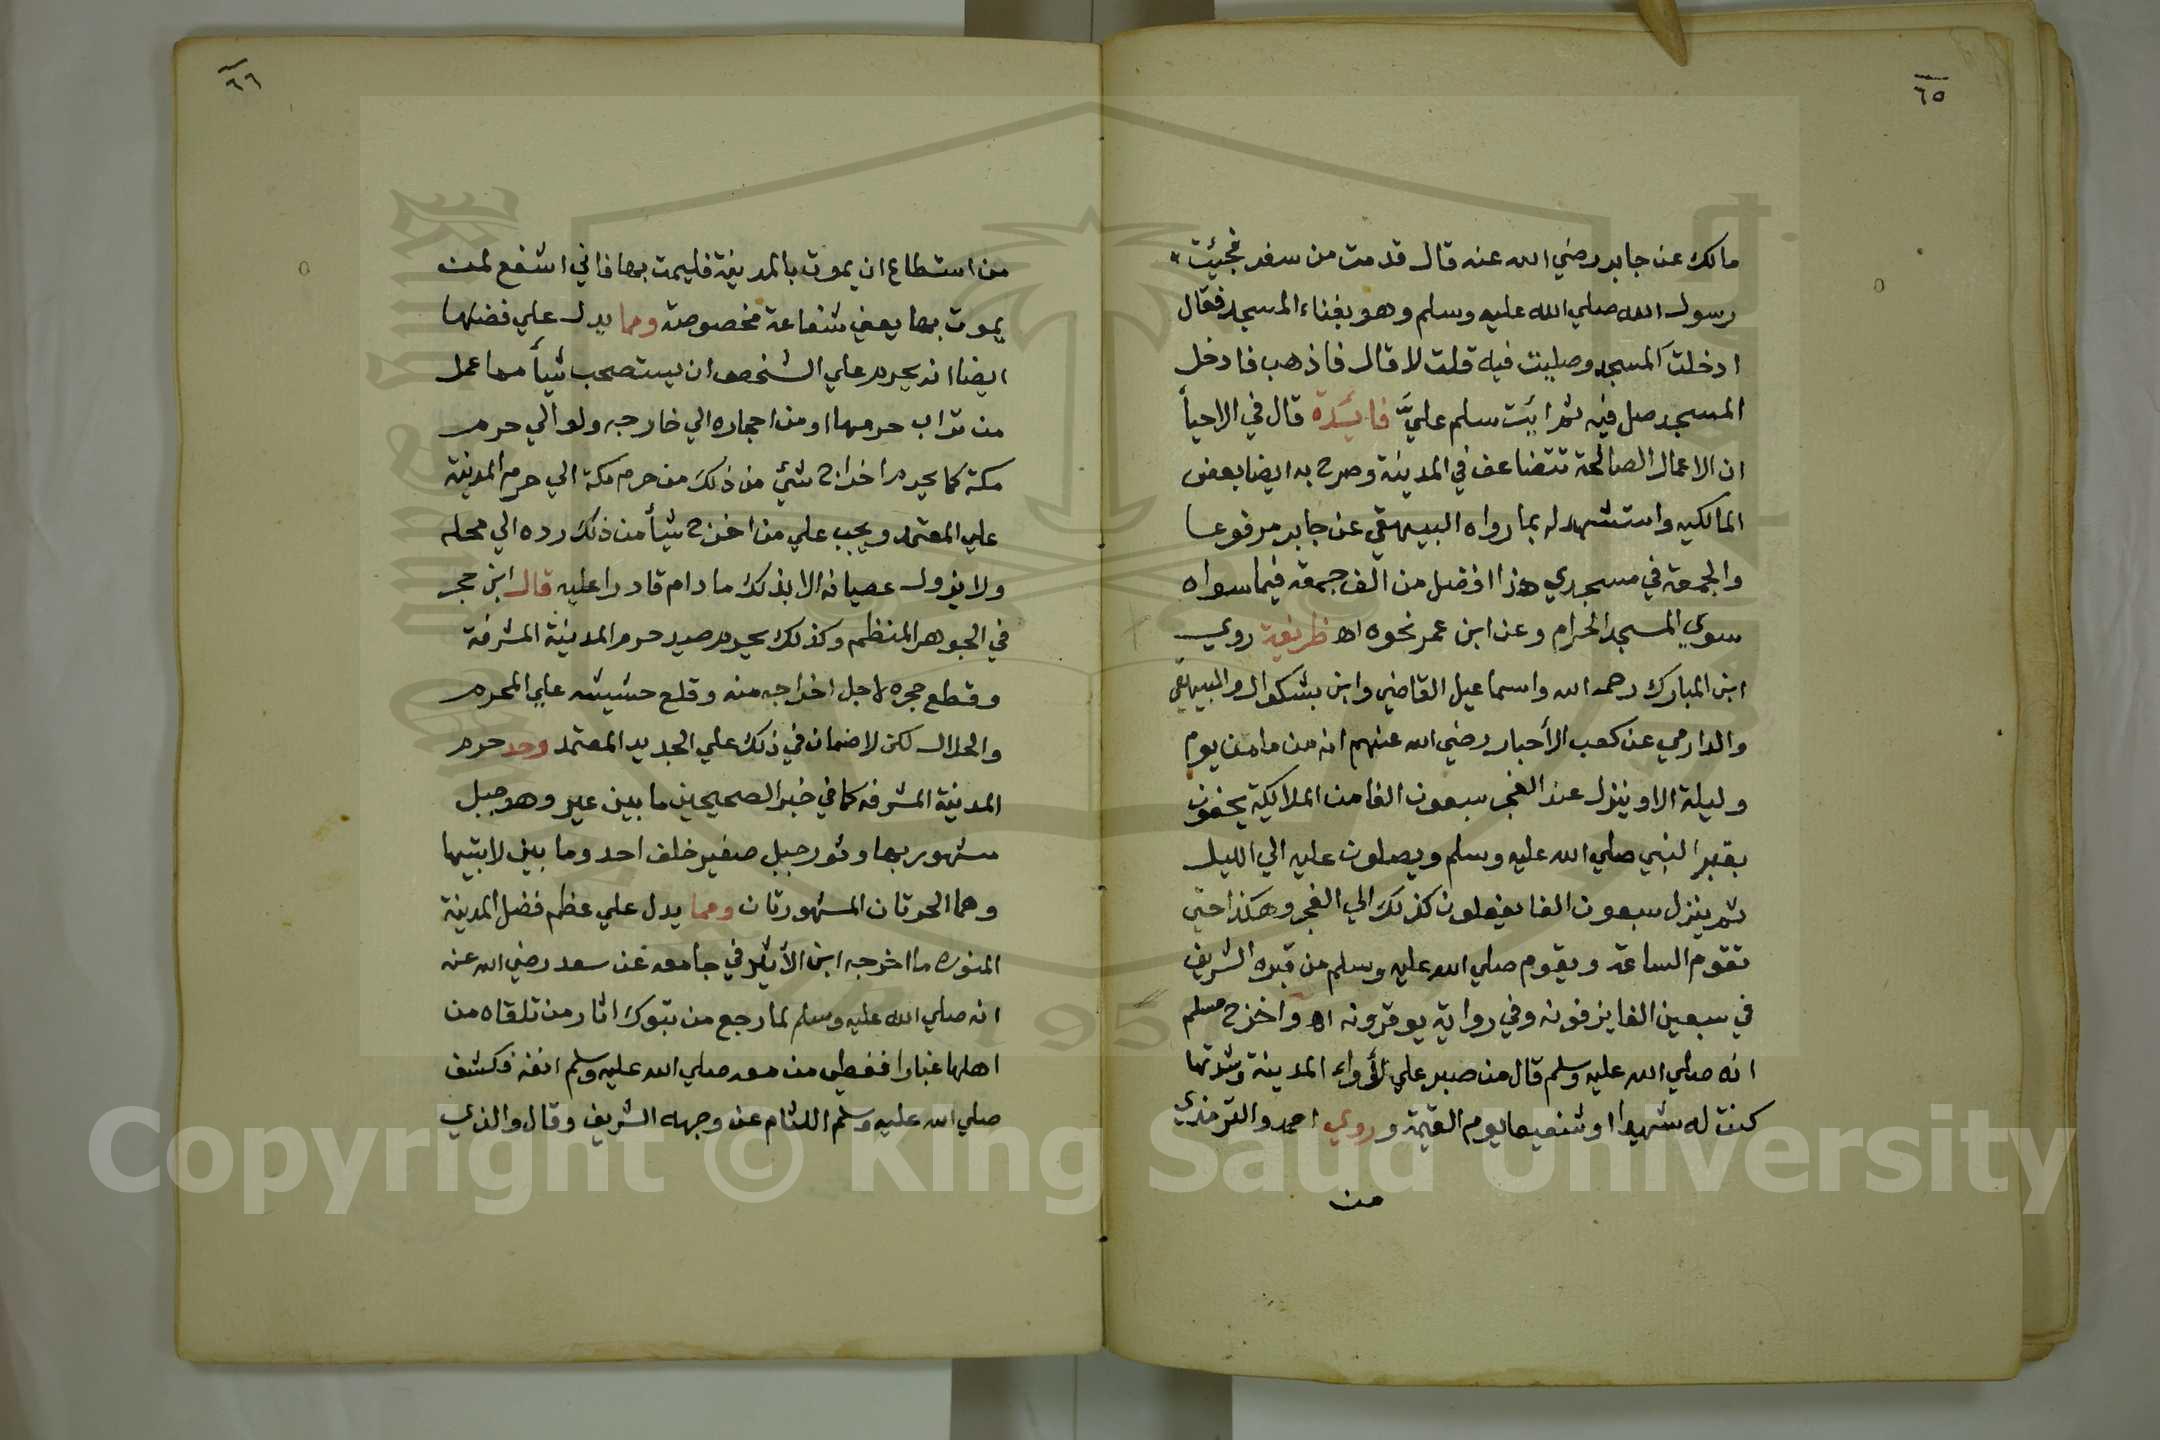 ٦٥
مالك عن جابر رضي الله عنه قال قدمت من سفر فجئت
رسول الله صلي الله عليه وسلم وهو بفناء المسجد فقال
ادخلت المسجد وصليت فيه قلت لا قال فاذهب فادخل
المسجد صل فيه ثم ائت سلم عليَّ فايدة قال في الاحيأ
ان الاعمال الصالحة تتضاعف في المدينة وصرح به ايضا بعض
المالكيه واستشهد له بما رواه البيهقي عن جابر مرفوعا
والجمعة في مسجدي هذا افضل من الف جمعة فيما سواه
سوي المسجد الحرام وعن ابن عمر نحوه اه ظريفة روي
ابن المبارك رحمه الله واسماعيل القاضي وابن بشكوال والبيهقي
والدارمي عن كعب الأحبار رضي الله عنهم انه من ما من يوم
وليلة الا وينزل عند الفجر سبعون الفا من الملايكة يحفون
بقبر النبي صلي الله عليه وسلم ويصلون عليه الي الليل
ثم ينزل سبعون الفا يفعلون كذلك الي الفجر وهكذا حتي
تقوم الساعة ويقوم صلي الله عليه وسلم من قبره الشريف
في سبعين الفا يزفونه وفي رواية يوقرونه اه واخرج مسلم
انه صلي الله عليه وسلم قال من صبر علي لأواء المدينة وشدتها
كنت له شهيدا او شفيعا يوم القيمة وروي احمد والترمذي
من
٦٦
من استطاع ان يموت بالمدينة فليمت بها فاني اشفع لمن
يموت بها يعني شفاعة مخصوصة ومما يدل علي فضلها
ايضا انه يحرم علي الشخص ان يستصحب شيأ مما عمل
من تراب حرمها او من احجاره الي خارجه ولو الي حرم
مكة كما يحرم اخراج شيئ من ذلك من حرم مكة الي حرم المدينة
علي المعتمد ويجب علي من اخرج شيأ من ذلك رده الي محله
ولا يزول عصيانه الا بذلك ما دام قادرا عليه قال ابن حجر
في الجوهر المنظم وكذلك يحرم صيد حرم المدينة المشرفة
وقطع حجره لاجل اخراجه منه وقلع حشيشه علي المحرم
والحلال لكن لا ضمان في ذلك علي الجديد المعتمد وحد حرم
المدينة المشرفه كما في خبر الصحيحين ما بين عير وهو جبل
مشهور بها وثور جبل صغير خلف احد وما بين لابتيها
وهما الحرتان المشهورتان ومما يدل علي عظم فضل المدينة
المنوره ما اخرجه ابن الأثير في جامعه عن سعد رضي الله عنه
انه صلي الله عليه وسلم لما رجع من تبوك اثار من تلقاه من
اهلها غبارا فغطي من معه صلي الله عليه وسلم انفه فكشف
صلي الله عليه وسلم اللثام عن وجهه الشريف وقال والذي
Copyright © King Saud University